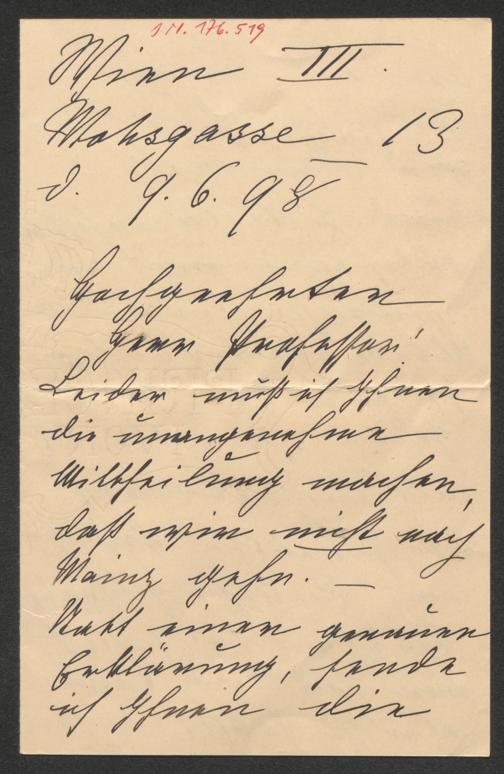 J.N. 176.519
Wien III.
Mohsgasse 13
d. 9.6.98
Hochgeehrter
Herr Professor!
Leider muß ich Ihnen
die unangenehme
Mittheilung machen,
daß wir nicht nach
Mainz gehn. —
Statt einer genauen
Erklärung, sende
ich Ihnen die